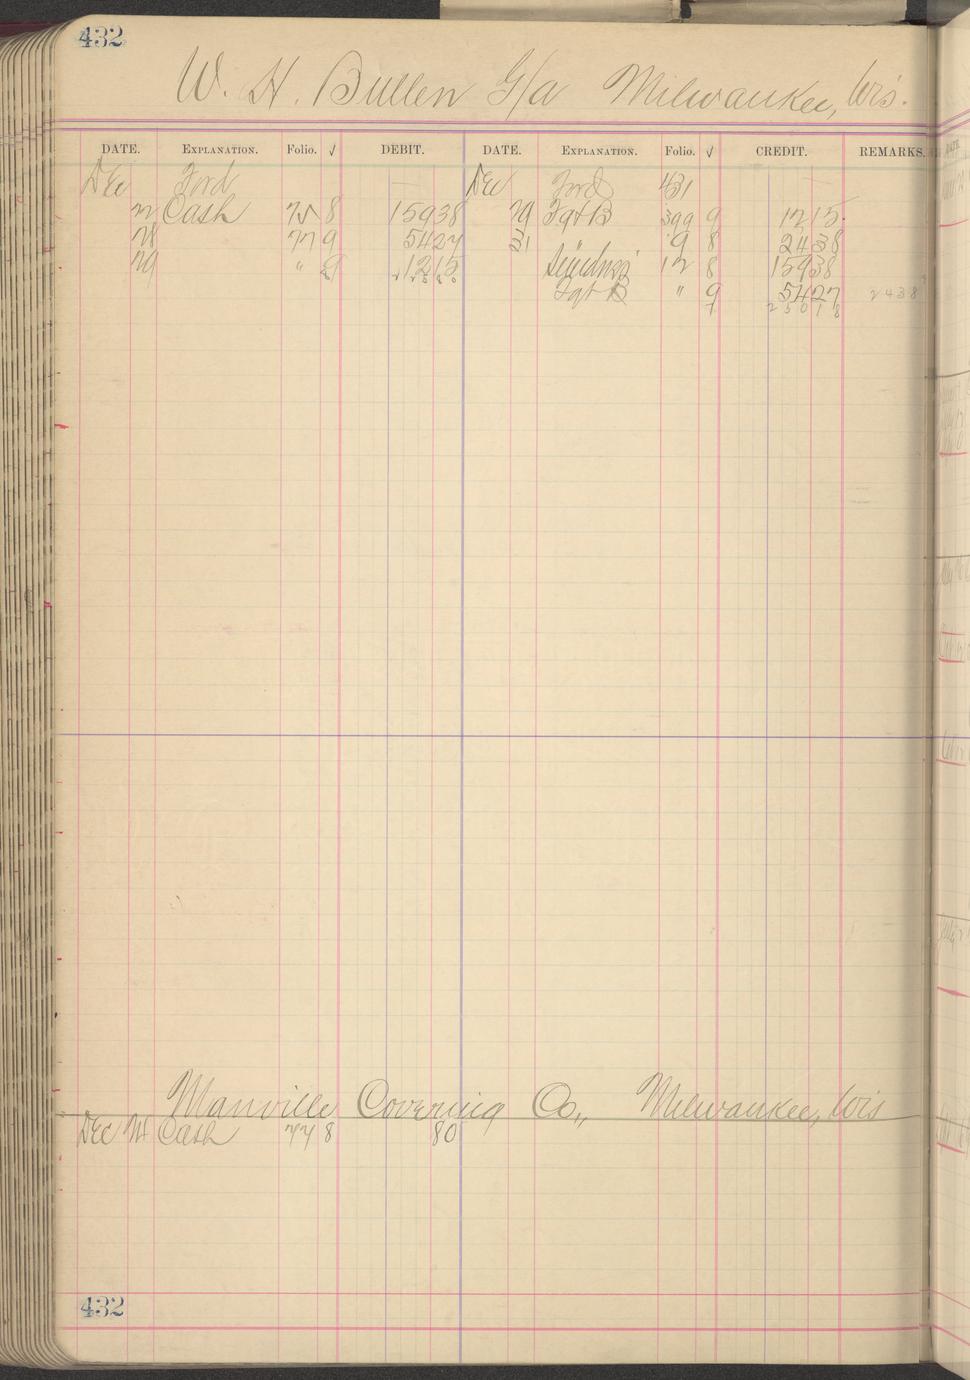 432
W. H. Bullen G/a Milwaukee, Wis.
DATE. EXPLANATION. Folio. √ DEBIT. DATE. EXPLANATION. Folio. √ CREDIT. REMARKS.
Dec Ford — Dec Ford 431 —
22 Cash 75 8 159 38 29 Fgt B 399 9 12 15
28 77 9 54 27 31 9 8 24 38
29 " 12 15 12 8 159 38
225 80 Fgt B " 9 54 27 24 38
250 18
Manville Covering Co., Milwaukee, Wis
Dec 24 Cash 77 8 80
432